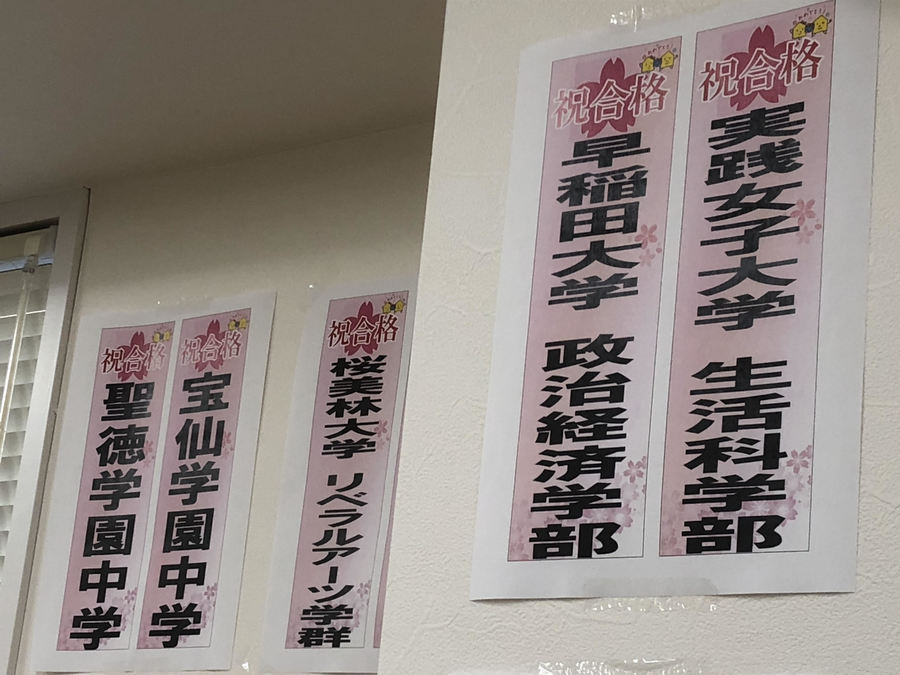 祝合格
聖徳学園中学
祝合格
宝仙学園中学
祝合格
桜美林大学 リベラルアーツ学群
祝合格
早稲田大学 政治経済学部
祝合格
実践女子大学 生活科学部